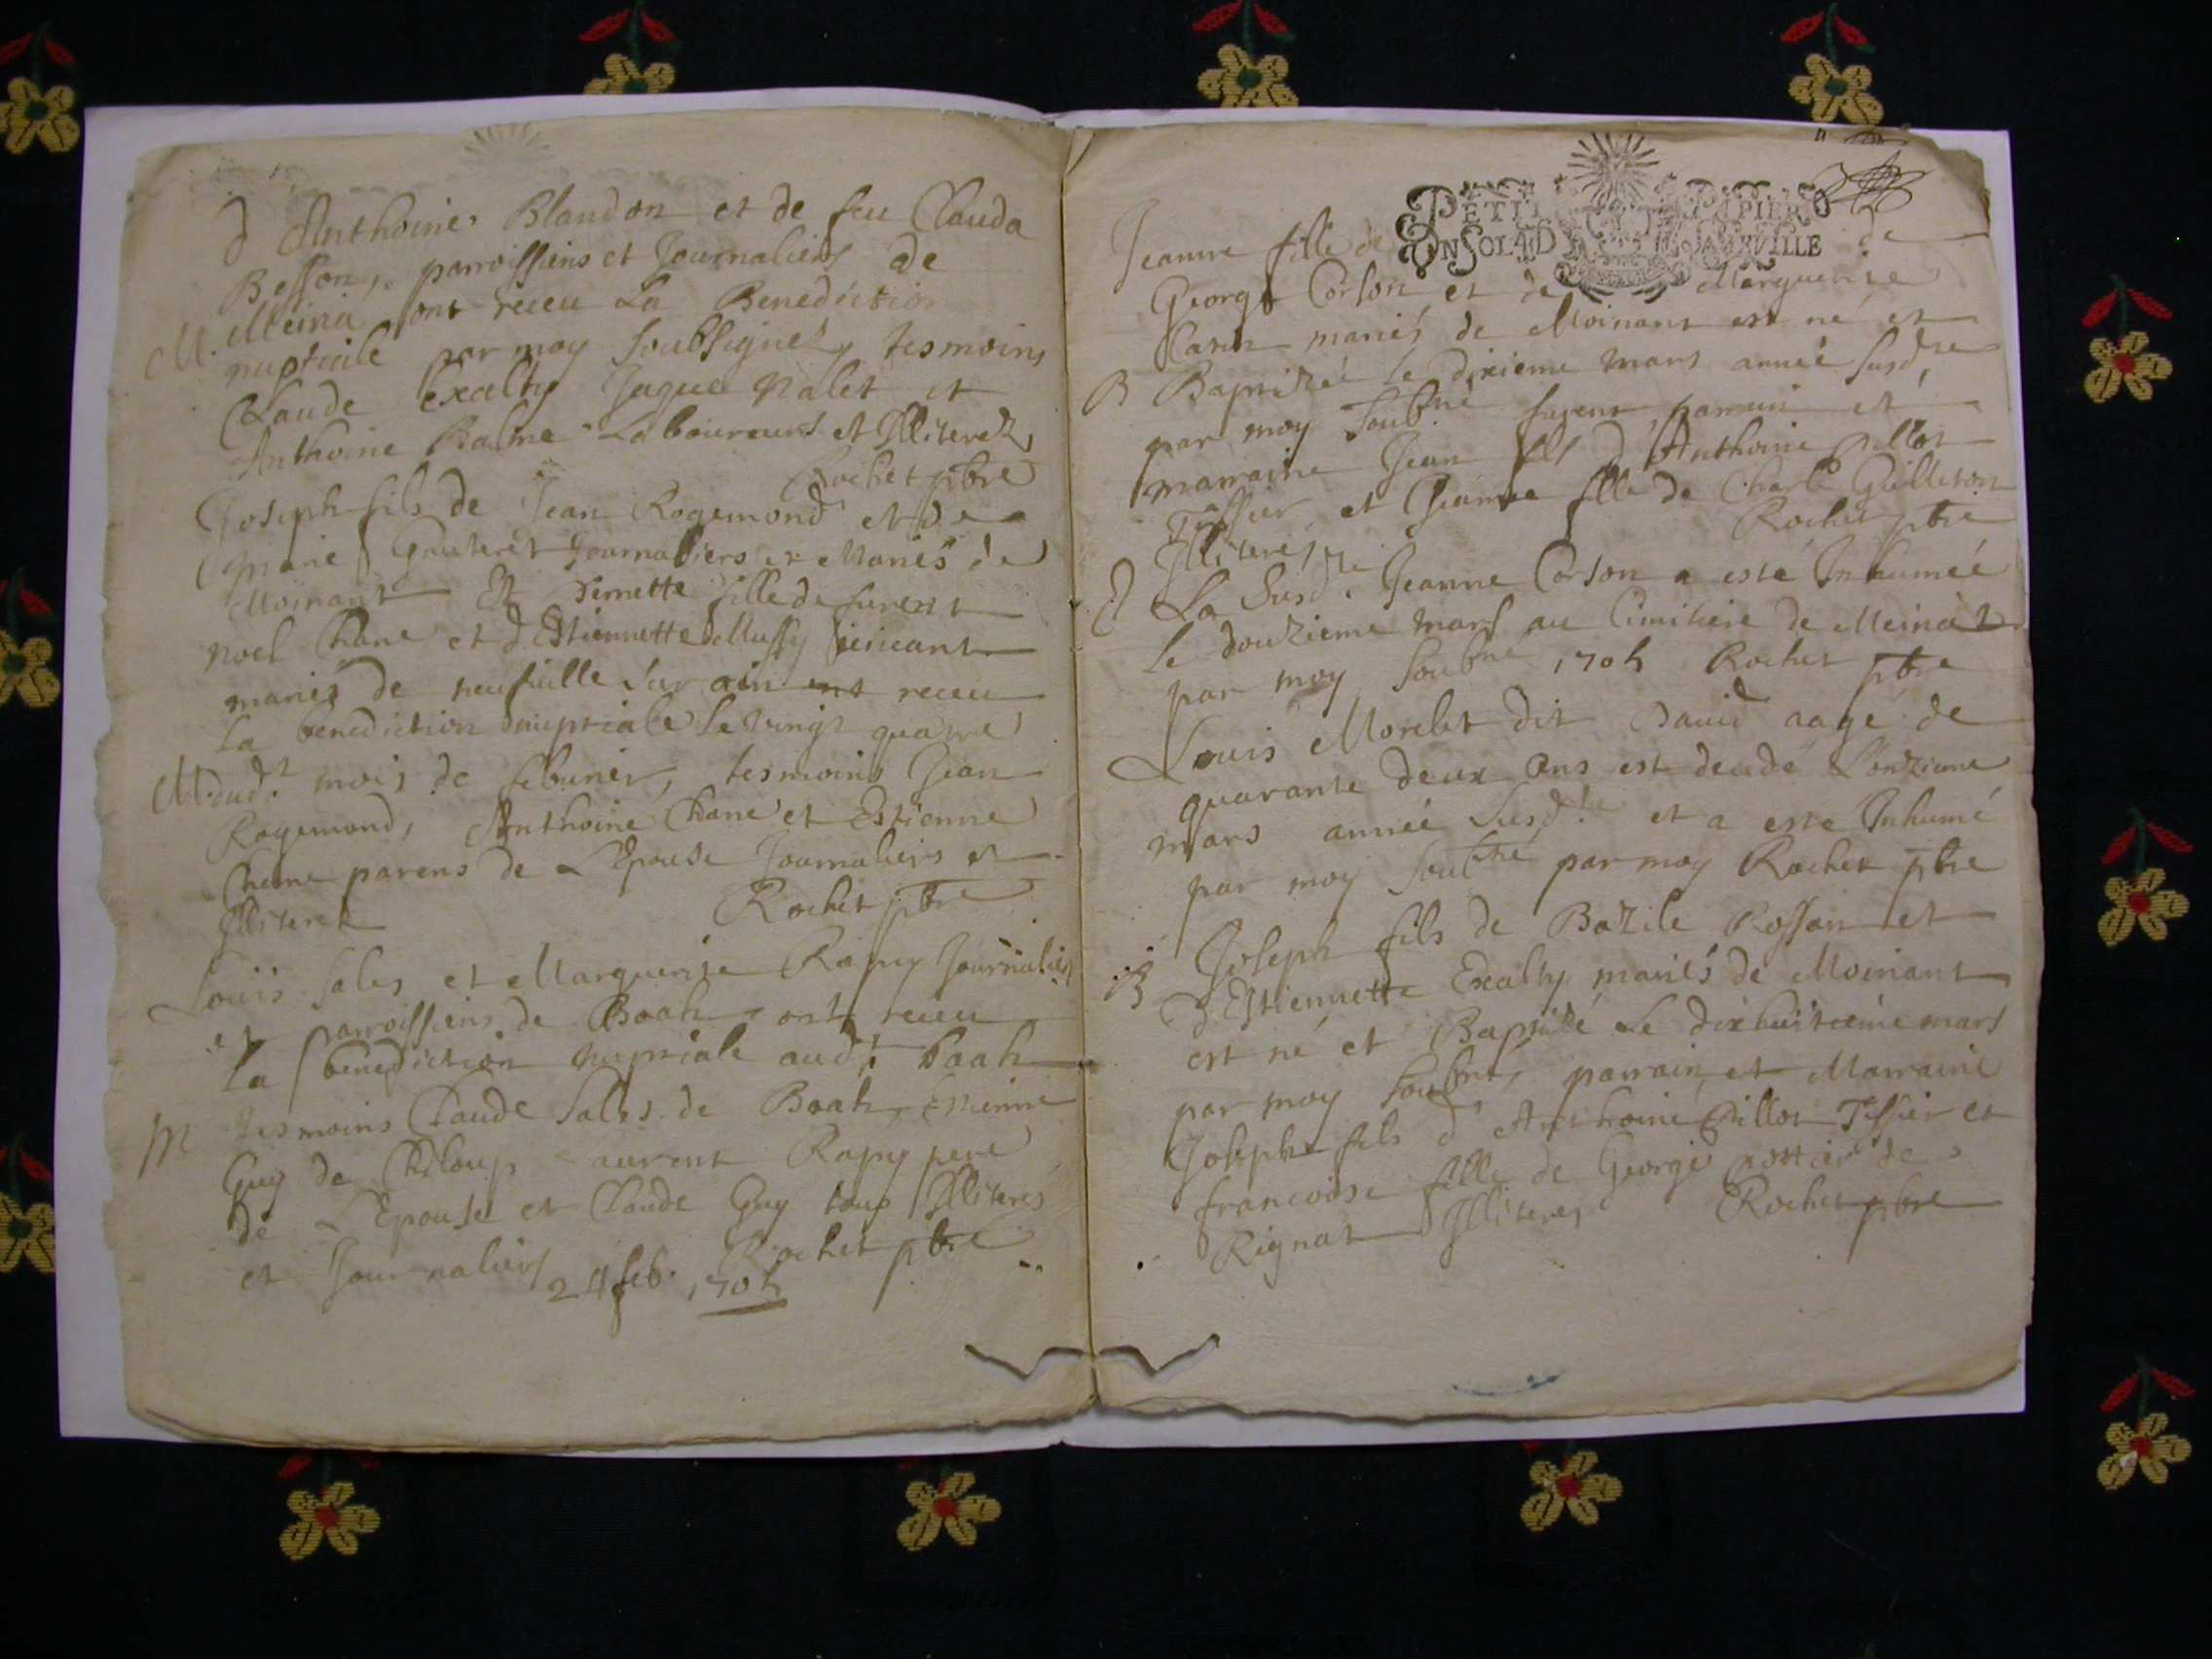 d Anthoine Blandon et de feu Clauda
Besson, parroissiens et Journaliers de
Meina ont receu La Benediction
M. nuptiale par moy soubsignez, tesmoins
Claude Exalty Jaque Nalet et
Anthoine Balme Laboureurs et Illiterez
Rochet pbre
Joseph fils de Jean Rogemond et de
Marie Gauteret Journaliers et Mariés de
Moinant Et Pernette fille de furent
noel Chane et d Estiennette Mussy vivant
mariés de neufville sur ain ont receu
La benediction nuptiale le vingt quatre
M. dud.t mois de febvrier, tesmoins Jean
Rogemond, Anthoine Chane et Estienne
Chane parens de L'Epouse Journaliers et
Illiteres Rochet pbre
Louis Sales et Marguerite Rapuy Journaliers
et parroissiens de Boah, ont receu
La benediction nuptiale aud.t Boah
M tesmoins Claude Sales de Boah Estienne
Guy de Chiloup Laurent Rapuy pere
de L'Epouse et Claude Guy tous Illiteres
et Journaliers Rochet pbre
24 feb. 1705
PETIT PAPIER
UN SOL 4 D LA FEVILLE
Jeanne fille de de
George Corson et de Marguerite
mariés de Moinant est né et
B Baptizée le dixieme mars année susd.te
par moy Soub.né furent parrain et
marraine Jean fils d Anthoine Pillot
Tissier et Jeanne fille de Charle Guilleson
Illiteres Rochet pbre
La Susd.te Jeanne Corson a esté Inhumée
le douzieme mars au Cimitiere de Meinat
par moy Soub.né 1705 Rochet pbre
Louis Morelet dit David aagé de
quarante deux ans est decedé L'onzieme
mars année Susd.te et a esté Inhumé
par moy Soub.né par moy Rochet pbre
Joseph fils de Bazile Rossan et
B d'Estiennette Exalty mariés de Moinant
est né et Baptizé Le dixhuitieme mars
par moy Soub.né, parrain et Marraine
Joseph fils d Anthoine Pillot Tissier et
francoise fille de George pottier de
Rignat Illiteres Rochet pbre